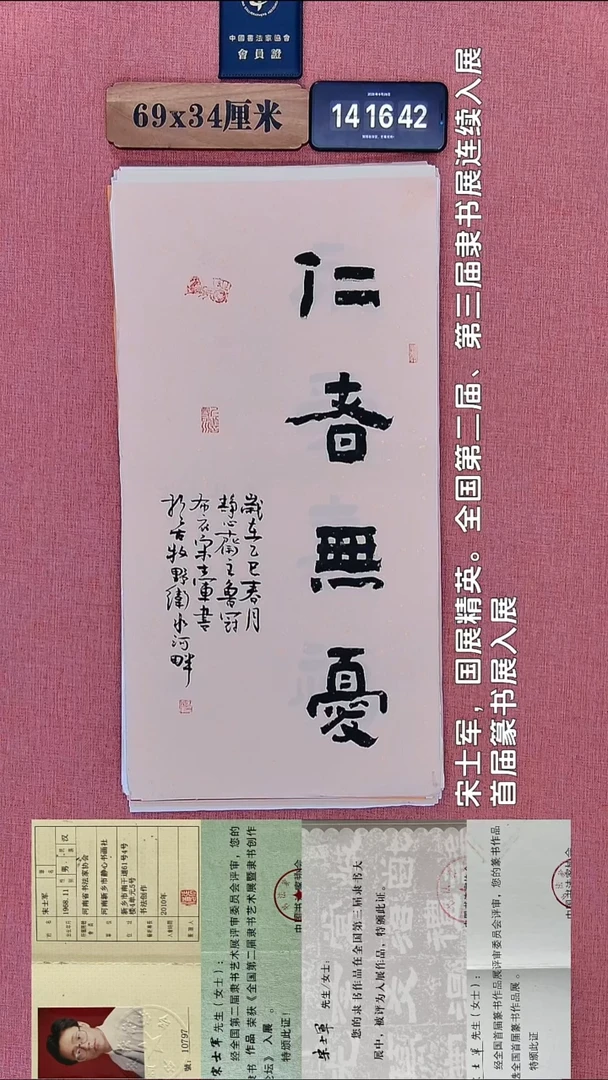 中國書法家協會
會員證
69x34厘米
14 16 42
仁者無憂
歲在乙巳春月
靜心齋主魯冠
布衣宋士軍書
於古牧野衛水河畔
宋士军，国展精英。全国第二届、第三届隶书展连续入展
首届篆书展入展
宋士军
1968.11 男 汉
河南省书法家协会
河南新乡市静心书画社
新乡市南干道61号4号
楼4单元5号
书法创作
2010年
號: 10797
宋士军 先生（女士）：
经全国第二届隶书艺术展评审委员会评审，您的
隶书 作品 荣获《全国第二届隶书艺术展暨隶书创作
论坛》 入展 。
特颁此证！
宋士军 先生/女士：
您的隶书作品在全国第三届隶书大
展中，被评为入展作品，特颁此证。
士军 先生（女士）：
经全国首届篆书作品展评审委员会评审，您的篆书作品
选全国首届篆书作品展 。
特颁此证